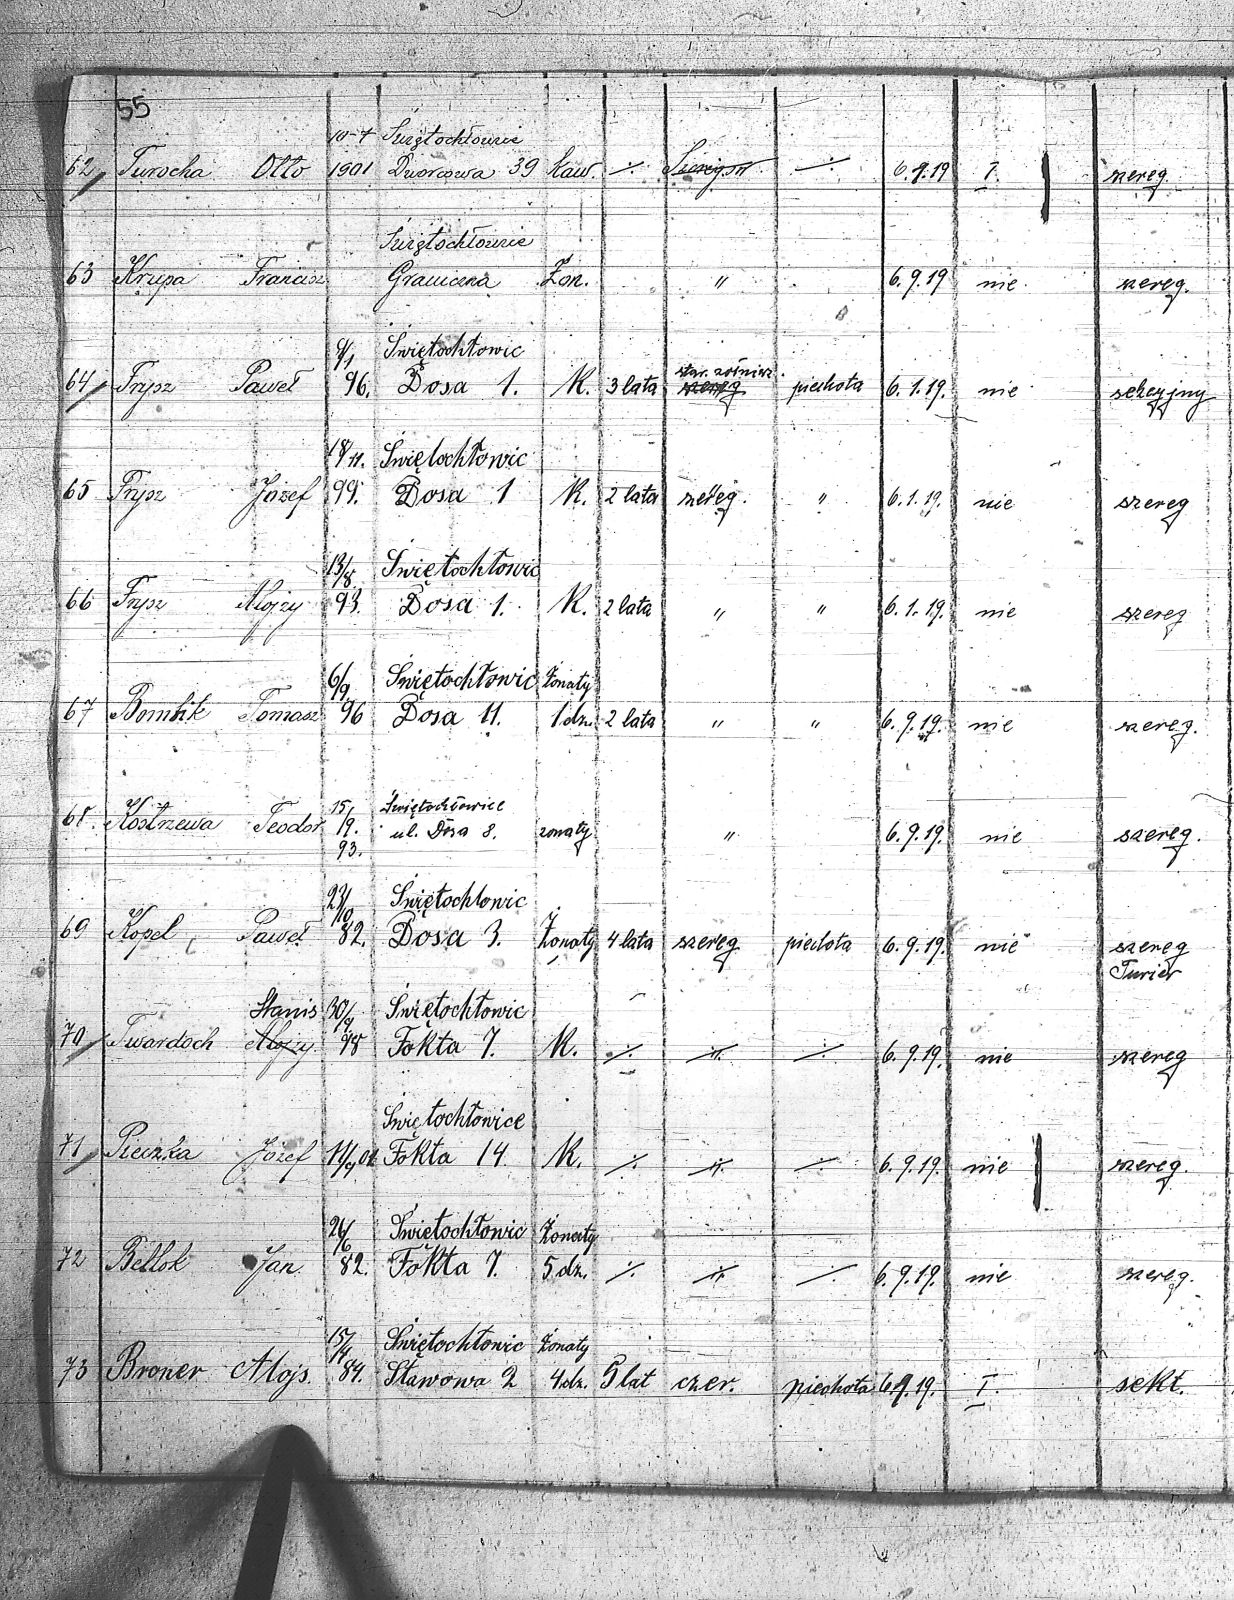 55
10-4 Świętochłowice
62 Turocha Otto 1901 Dworcowa 39 kaw. ./. ./. 6.9.19 I szereg.
Świętochłowice
63 Krupa Francisz Graniczna Żon. " 6.9.19 nie szereg.
Świętochłowic star. żołnierz.
64 Frysz Paweł 96. Dosa 1. K. 3 lata szereg piechota 6.1.19. nie sekcyjny
18/11. Świętochłowic
65 Frysz Józef 99. Dosa 1 K. 2 lata szereg. " 6.1.19. nie szereg
13/8. Świętochłowic
66 Frysz Alojzy 93. Dosa 1. K. 2 lata " " 6.1.19. nie szereg
6/9. Świętochłowic Żonaty
67 Bombik Tomasz 96 Dosa 11. 1 dz. 2 lata " " 6.9.19. nie szereg.
15/ Świętochłowice
68. Kostrzewa Teodor 19. ul. Dosa 8. żonaty " 6.9.19. nie szereg.
93.
Świętochłowic
69 Kopel Paweł 82. Dosa 3. Żonaty 4 lata szereg piechota 6.9.19. nie szereg
Furier
Stanis 30/9. Świętochłowic
70 Twardoch Alojzy 98 Fokta 7. K. ./. " ./. 6.9.19. nie szereg
Świętochłowice
71 Pieczka Józef Fokta 14. K. ./. " ./. 6.9.19. nie szereg.
26/6 Świętochłowic Żonaty
72 Bellok Jan 82. Fokta 7. 5 dz. ./. " ./. 6.9.19. nie szereg.
15/4. Świętochłowic Żonaty
73 Broner Alojs. 84. Stawowa 2 4 dz. 5 lat czer. piechota 6.9.19. I. sekt.